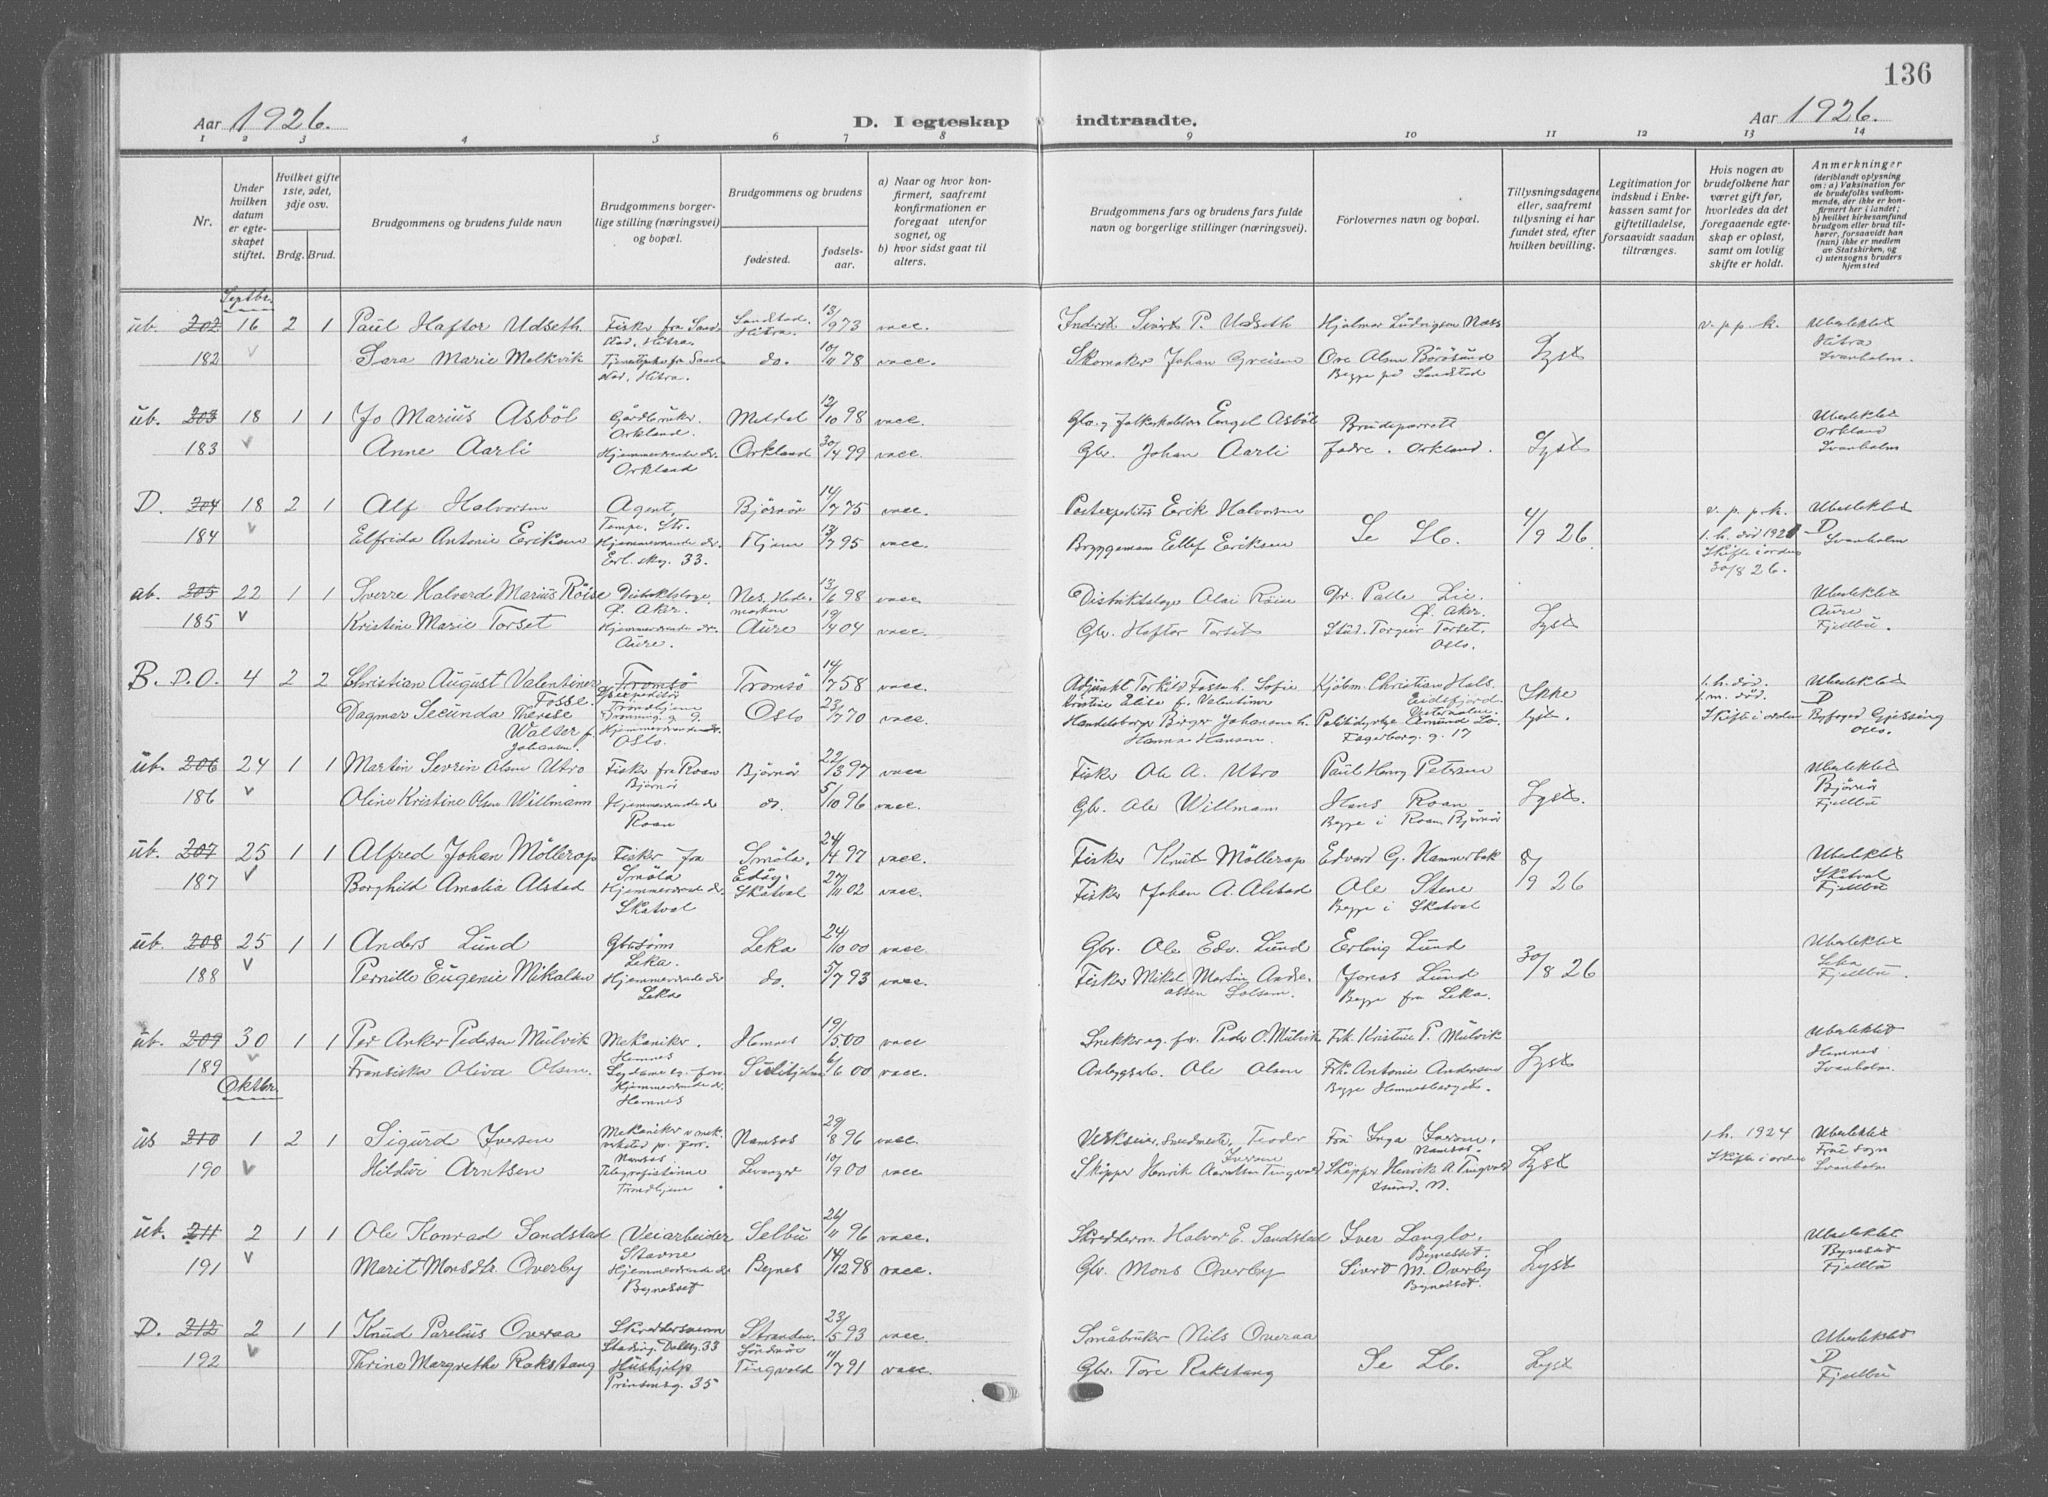 136
Aar 1926. D. I egteskap indtraadte. Aar 1926.
1 2 3 4 5 6 7 8 9 10 11 12 13 14
Nr.
Under hvilken datum er egteskapet stiftet.
Hvilket gifte 1ste, 2det, 3dje osv.
Brdg. Brud.
Brudgommens og brudens fulde navn
Brudgommens borgerlige stilling (næringsvei) og bopæl.
Brudgommens og brudens
fødested. fødselsaar.
a) Naar og hvor konfirmert, saafremt konfirmationen er foregaat utenfor sognet, og
b) hvor sidst gaat til alters.
Brudgommens fars og brudens fars fulde navn og borgerlige stillinger (næringsvei).
Forlovernes navn og bopæl.
Tillysningsdagene eller, saafremt tillysning ei har fundet sted, efter hvilken bevilling.
Legitimation for indskud i Enkekassen samt for giftetilladelse, forsaavidt saadan tiltrænges.
Hvis nogen av brudefolkene har været gift før, hvorledes da det foregaaende egteskap er opløst, samt om lovlig skifte er holdt.
Anmerkninger (deriblandt oplysning om: a) Vaksination for de brudefolks vedkommende, der ikke er konfirmert her i landet; b) hvilket kirkesamfund brudgom eller brud tilhører, forsaavidt han (hun) ikke er medlem av Statskirken, og c) utensogns bruders hjemsted
Septbr.
ub. 202 16 2 1 Paul Haftor Udseth Fisker fra Sandstad, Hitra. Sandstad, Hitra. 13/9 73 vacc. Sivert P. Udseth Hjalmar Ludvigsen Næss v. p. p. k. Uberlektet Hitra Svanholm.
182 Sara Marie Melkvik Sandstad, Hitra. do. 10/11 78 vacc. Skomaker Johan Greisen Ove Olsen Börösund Begge på Sandstad Lyst
ub. 203 18 1 1 Jo Marius Asböl Gårdbruker. Orkland. Meldal 12/10 98 vacc. Engel Asböl Brudeparrets Orkland Svanholm
183 Anne Aarli Hjemmeværende dr. Orkland Orkland 30/4 99 vacc. Gbr. Johan Aarli fædre. Orkland. Lyst
D. 204 18 2 1 Alf Halvorsen Agent, Tempe, Str. Björnör 14/7 75 vacc. Postexpeditör Erik Halvorsen Se Lb. 4/9 26 v. p. p. k. D Svanholm
184 Elfrida Antonie Eriksen Hjemmeværende dr. 33. 13/7 95 vacc. Bryggemann Ellef Eriksen 1. h. död Skifte i orden 30/8 26.
ub. 205 22 1 1 Sverre Halvard Marius Röise Distriktslæge. Ö. Aker. Nes, Hedemarken 13/6 98 vacc. Distriktslæge Olai Röise Dr. Palle Lie. Ö. Aker. Aure Fjellbu.
185 Kristine Marie Torset Hjemmeværende dr. Aure. Aure 19/4 04 vacc. Gbr. Haftor Torset Stud. Torgeir Torset, Oslo. Lyst
B. D.O. 4 2 2 Christian August Valentiner Fosse. Tromsö Trondhjem Tromsö 14/7 58 vacc. Adjunkt Torkild Fosse h. Sofie Christian Hals Eidsfjord Ikke lyst. 1. h. död. 1. m. död. Skifte i orden D Byfoged Gjessing Oslo.
Dagmar Secunda Therese Walter f. Johansen. Hjemmeværende Oslo. Oslo 23/7 70 vacc. Birger Johansen h. Hanna Hansen. Fagerborg. g. 17
ub. 206 24 1 1 Martin Severin Olsen Utro Fisker fra Roan Björnör Björnör 22/3 97 vacc Fisker Ole A. Utro Paul Henry Petersen Björnör Fjellbu
186 Oline Kristine Olsen Willmann Hjemmeværende dr Roan do. 5/10 96 vacc. Gbr. Ole Willmann Hans Roan Begge i Roan Björnör Lyst.
ub. 207 25 1 1 Alfred Johan Möllerop Fisker fra Smöla Smöla, Edöy. 24/4 97 vacc. Fisker Knut Möllerop Edvard G. Hammerbak 8/9 26 Skatval Fjellbu
187 Borghild Amalia Alstad Hjemmeværende dr. Skatval Skatval 27/11 02 vacc. Fisker Johan A. Alstad Ole Stene Begge i Skatval
ub. 208 25 1 1 Anders Lund Leka. Leka 24/10 00 vacc. Gbr. Ole Edv. Lund Erling Lund 30/8 26 Leka Fjellbu.
188 Pernille Eugenie Mikalsen Hjemmeværende dr Leka do. 5/7 93 vacc. Fisker Mikal Martin Andreassen Solsem. Jonas Lund Begge fra Leka.
ub. 209 30 1 1 Per Anker Pedersen Mulvik Mekaniker. Hemnes Hemnes 19/5 00 vacc Peder O. Mulvik Frk. Kristine P. Mulvik Hemnes Svanholm.
189 Fransiska Oliva Olsen. Hjemmeværende dr. Hemnes Sulitjelma 6/6 00 vacc. Ole Olsen Frk. Antonie Andersen Begge Hemnesberget. Lyst
Oktbr.
us 210 1 2 1 Sigurd Iversen Namsos. Namsos 29/8 96 vacc. Teodor Iversen Fru Inga Iversen, Namsos. 1. h. 1924 Skifte i orden Frue sogn Svanholm
190 Hildur Arntsen Telegrafistinne Trondhjem Levanger 10/9 00 vacc. Skipper Henrik Arntsen Tingvold Skipper Henrik A. Tingvold Lyst
ub. 211 2 1 1 Ole Konrad Sandstad Veiarbeider Stavne Selbu 26/11 96 vacc. Halvor E. Sandstad Iver Langlo, Bynesset. Bynesset Fjellbu
191 Marit Monsdtr. Overby Hjemmeværende dr Bynesset Bynes 14/12 98 vacc. Gbr. Mons Overby Sivert M. Overby Bynesset. Lyst
D. 212 2 1 1 Knud Parelius Overaa Skreddersvenn 33 23/5 93 vacc. Småbruker Nils Overaa Se Lb. Lyst D Fjellbu
192 Thrine Margrethe Rakstang Hushjelp Prinsensg. 35 Tingvold 11/7 91 vacc. Gbr. Tore Rakstang